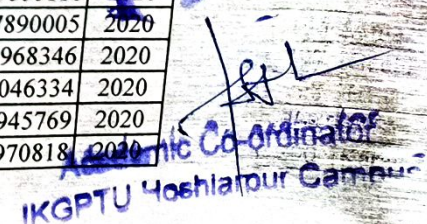 7890005 2020
968346 2020
046334 2020
945769 2020
970818 2020
Academic Co-ordinator
IKGPTU Hoshiarpur Campus